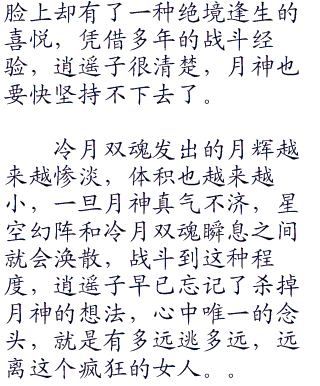 脸上却有了一种绝境逢生的
喜悦，凭借多年的战斗经
验，逍遥子很清楚，月神也
要快坚持不下去了。
冷月双魂发出的月辉越
来越惨淡，体积也越来越
小，一旦月神真气不济，星
空幻阵和冷月双魂瞬息之间
就会涣散，战斗到这种程
度，逍遥子早已忘记了杀掉
月神的想法，心中唯一的念
头，就是有多远逃多远，远
离这个疯狂的女人。。